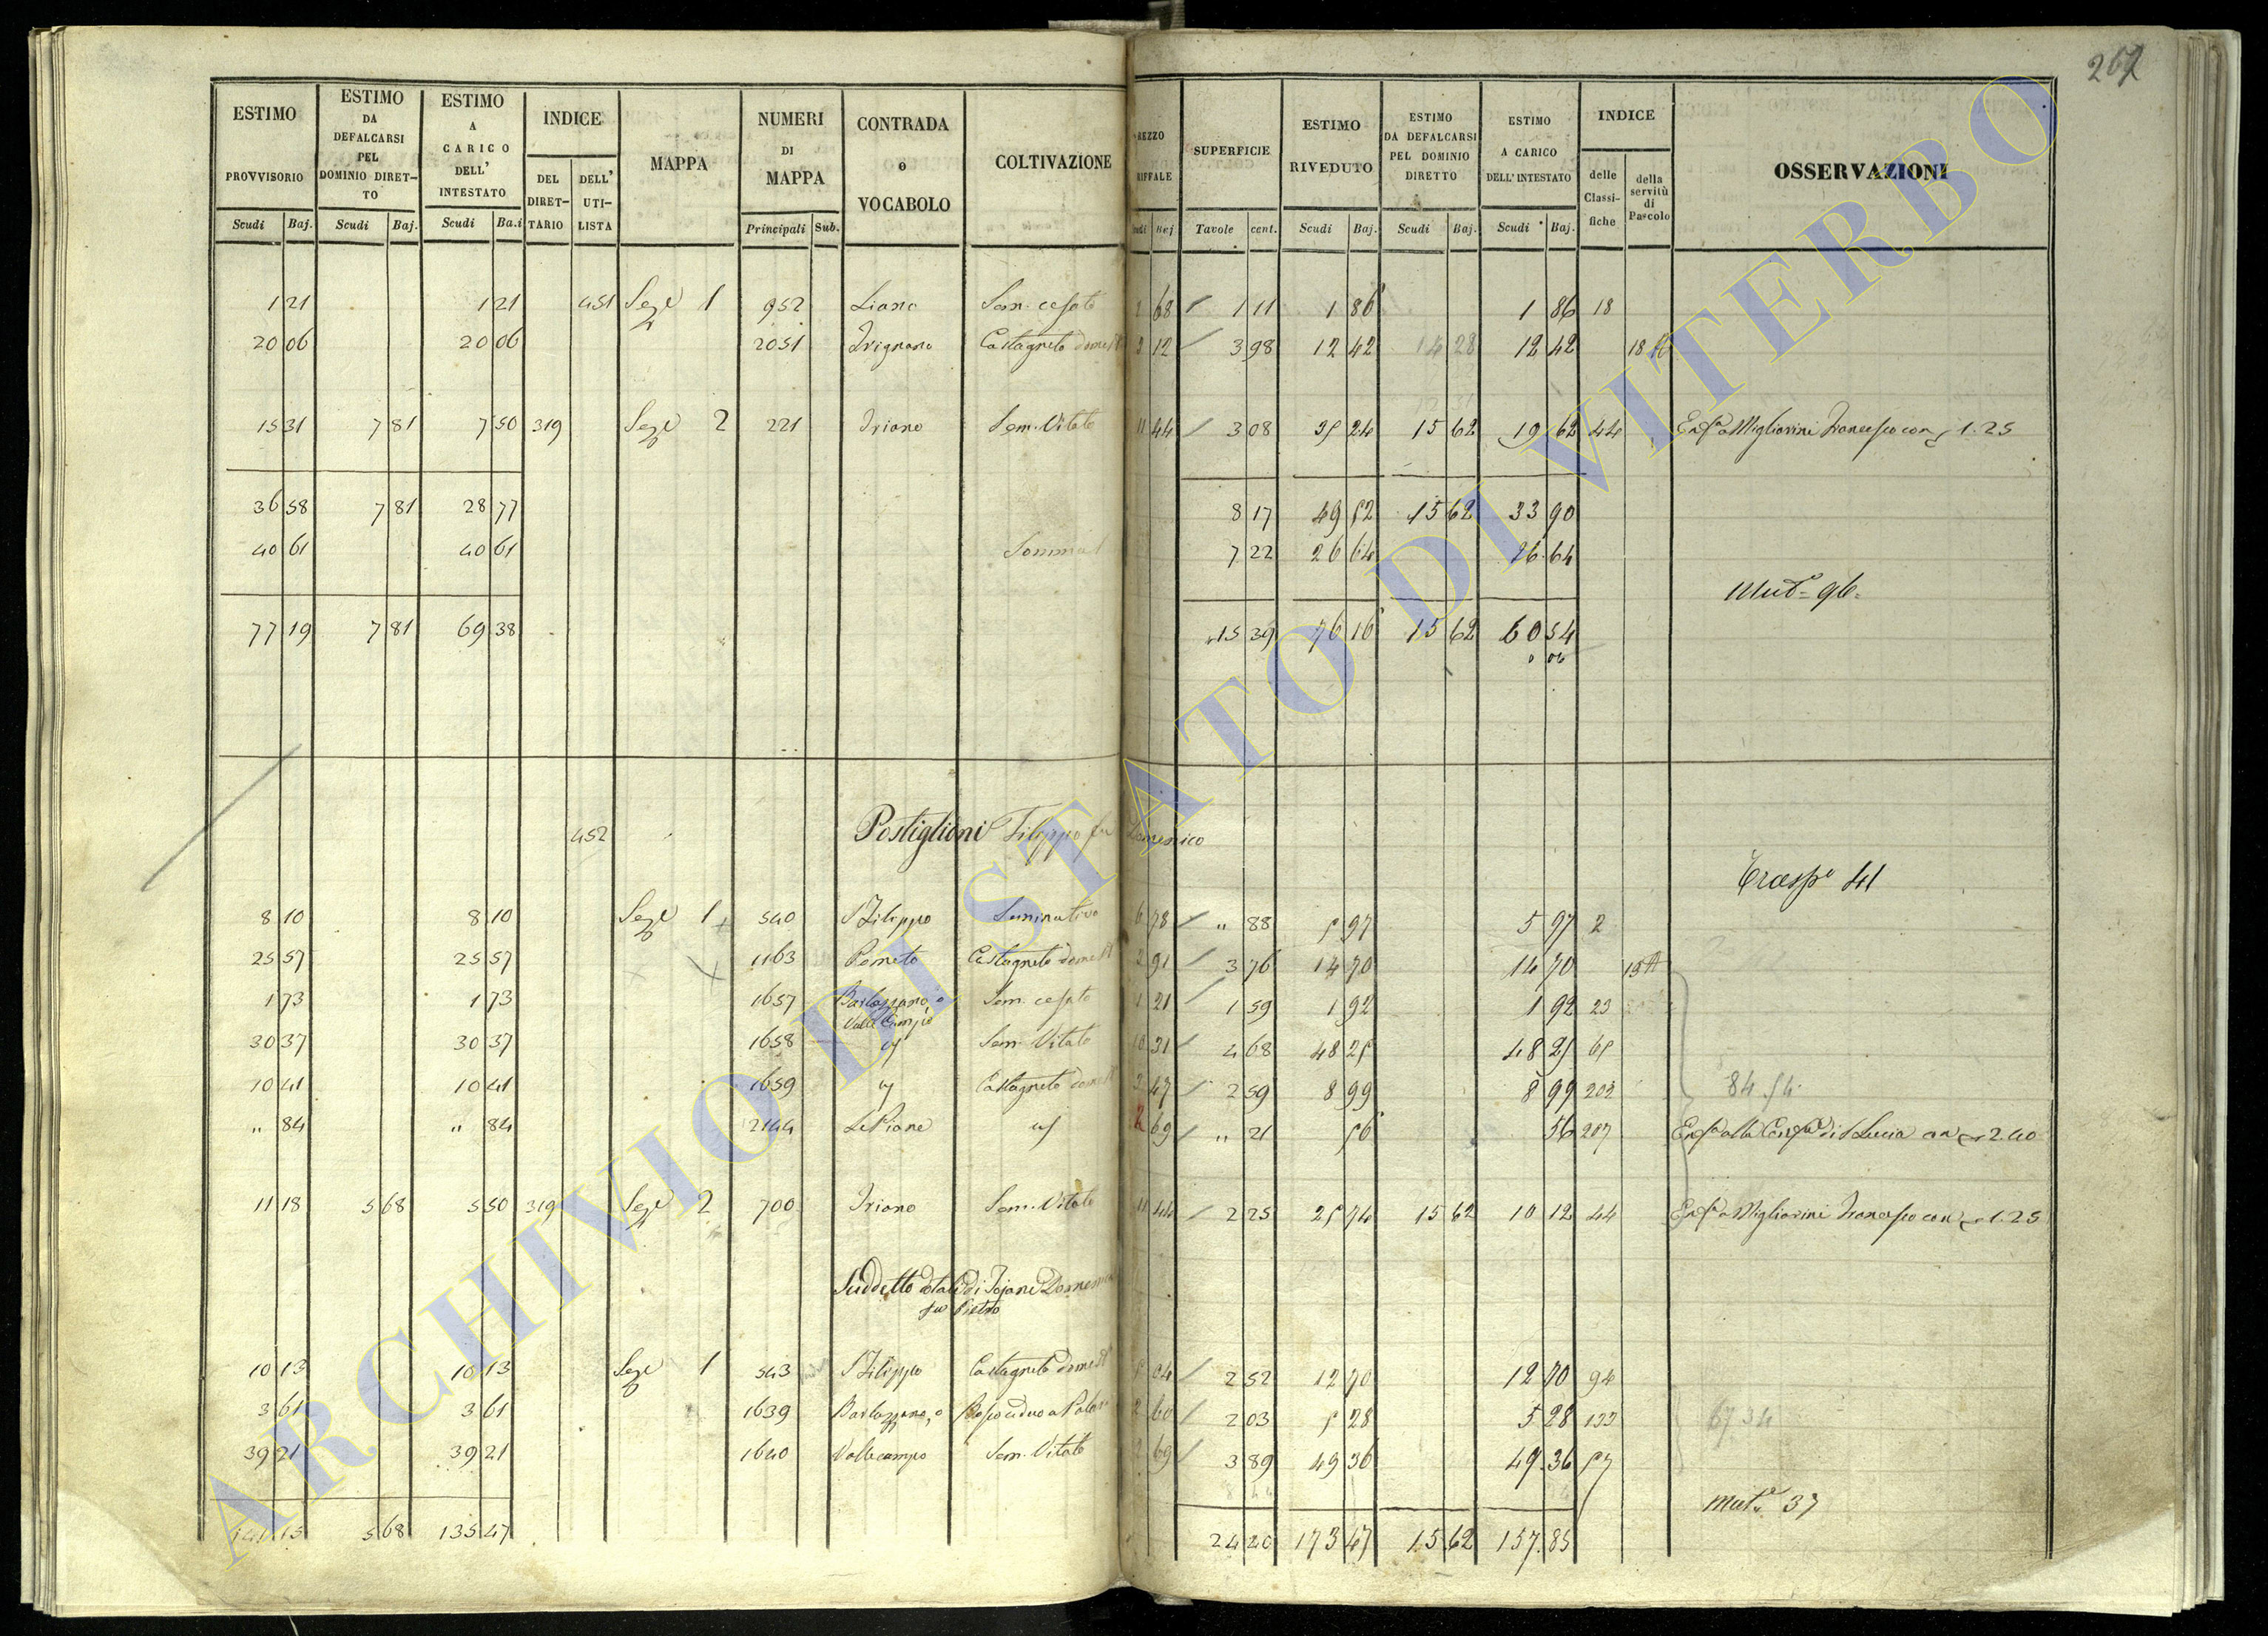 267
ESTIMO PROVVISORIO ESTIMO DA DEFALCARSI PEL DOMINIO DIRETTO ESTIMO A CARICO DELL' INTESTATO INDICE DEL DIRETTARIO DELL' UTILISTA MAPPA NUMERI DI MAPPA CONTRADA o VOCABOLO COLTIVAZIONE REZZO RIFFALE SUPERFICIE ESTIMO RIVEDUTO ESTIMO DA DEFALCARSI PEL DOMINIO DIRETTO ESTIMO A CARICO DELL' INTESTATO INDICE delle Classifiche della servitù di Pascolo OSSERVAZIONI
Scudi Baj. Scudi Baj. Scudi Ba.i Principali Sub. Baj Tavole cent. Scudi Baj. Scudi Baj. Scudi Baj.
1 21 1 21 451 Seze 1 952 Liano Sem. cesato 2 68 1 11 1 86 1 86 18
20 06 20 06 2051 Irignano Castagneto domest 3 12 3 98 12 42 14 28 12 42 18 A
15 31 7 81 7 50 319 Seze 2 221 Iriano Sem. Vitato 11 44 3 08 35 24 15 62 19 62 44 Enfa a Migliorini Francesco con 1.25
36 58 7 81 28 77 8 17 49 52 15 62 33 90
40 61 40 61 Somma 7 22 26 64 26 64
Mut= 96=
77 19 7 81 69 38 15 39 76 16 15 62 60 54
0 06
452 Postiglioni Filippo fu Domenico
Trasp 41
8 10 8 10 Seze 1 540 S Filippo Seminativo 6 78 " 88 5 97 5 97 2
25 57 25 57 1163 Pometo Castagneto domest 3 91 3 76 14 70 14 70 19 A
1 73 1 73 1657 Barlozzano, o Sem. cesato 1 21 1 59 1 92 1 92 23
Valle Ciampio
30 37 30 37 1658 Sem. Vitato 10 31 4 68 48 25 48 25 65
10 41 10 41 1659 Castagneto domest 3 47 2 59 8 99 8 99 202
84.54
" 84 " 84 2144 Le Piane 2 69 " 21 56 56 207 Enfa alla Compa di S Lucia con 2.40
11 18 5 68 5 50 319 Seze 2 700 Iriano Sem. Vitato 11 44 2 25 25 74 15 62 10 12 44 Enfa a Migliorini Francesco con 1.25
Suddetto dotali di Domenica
fu Pietro
10 13 10 13 Seze 1 543 S Filippo Castagneto domest 5 04 2 52 12 70 12 70 94
3 61 3 61 1639 Barlozzano, o Bosco ceduo a Palo 2 60 2 03 5 28 5 28 133 67 34
39 21 39 21 1640 Vallecampo Sem. Vitato 2 69 3 89 49 36 49 36 57
Mut. 37
141 15 5 68 135 47 24 40 173 47 15 62 157 85
ARCHIVIO DI STATO DI VITERBO